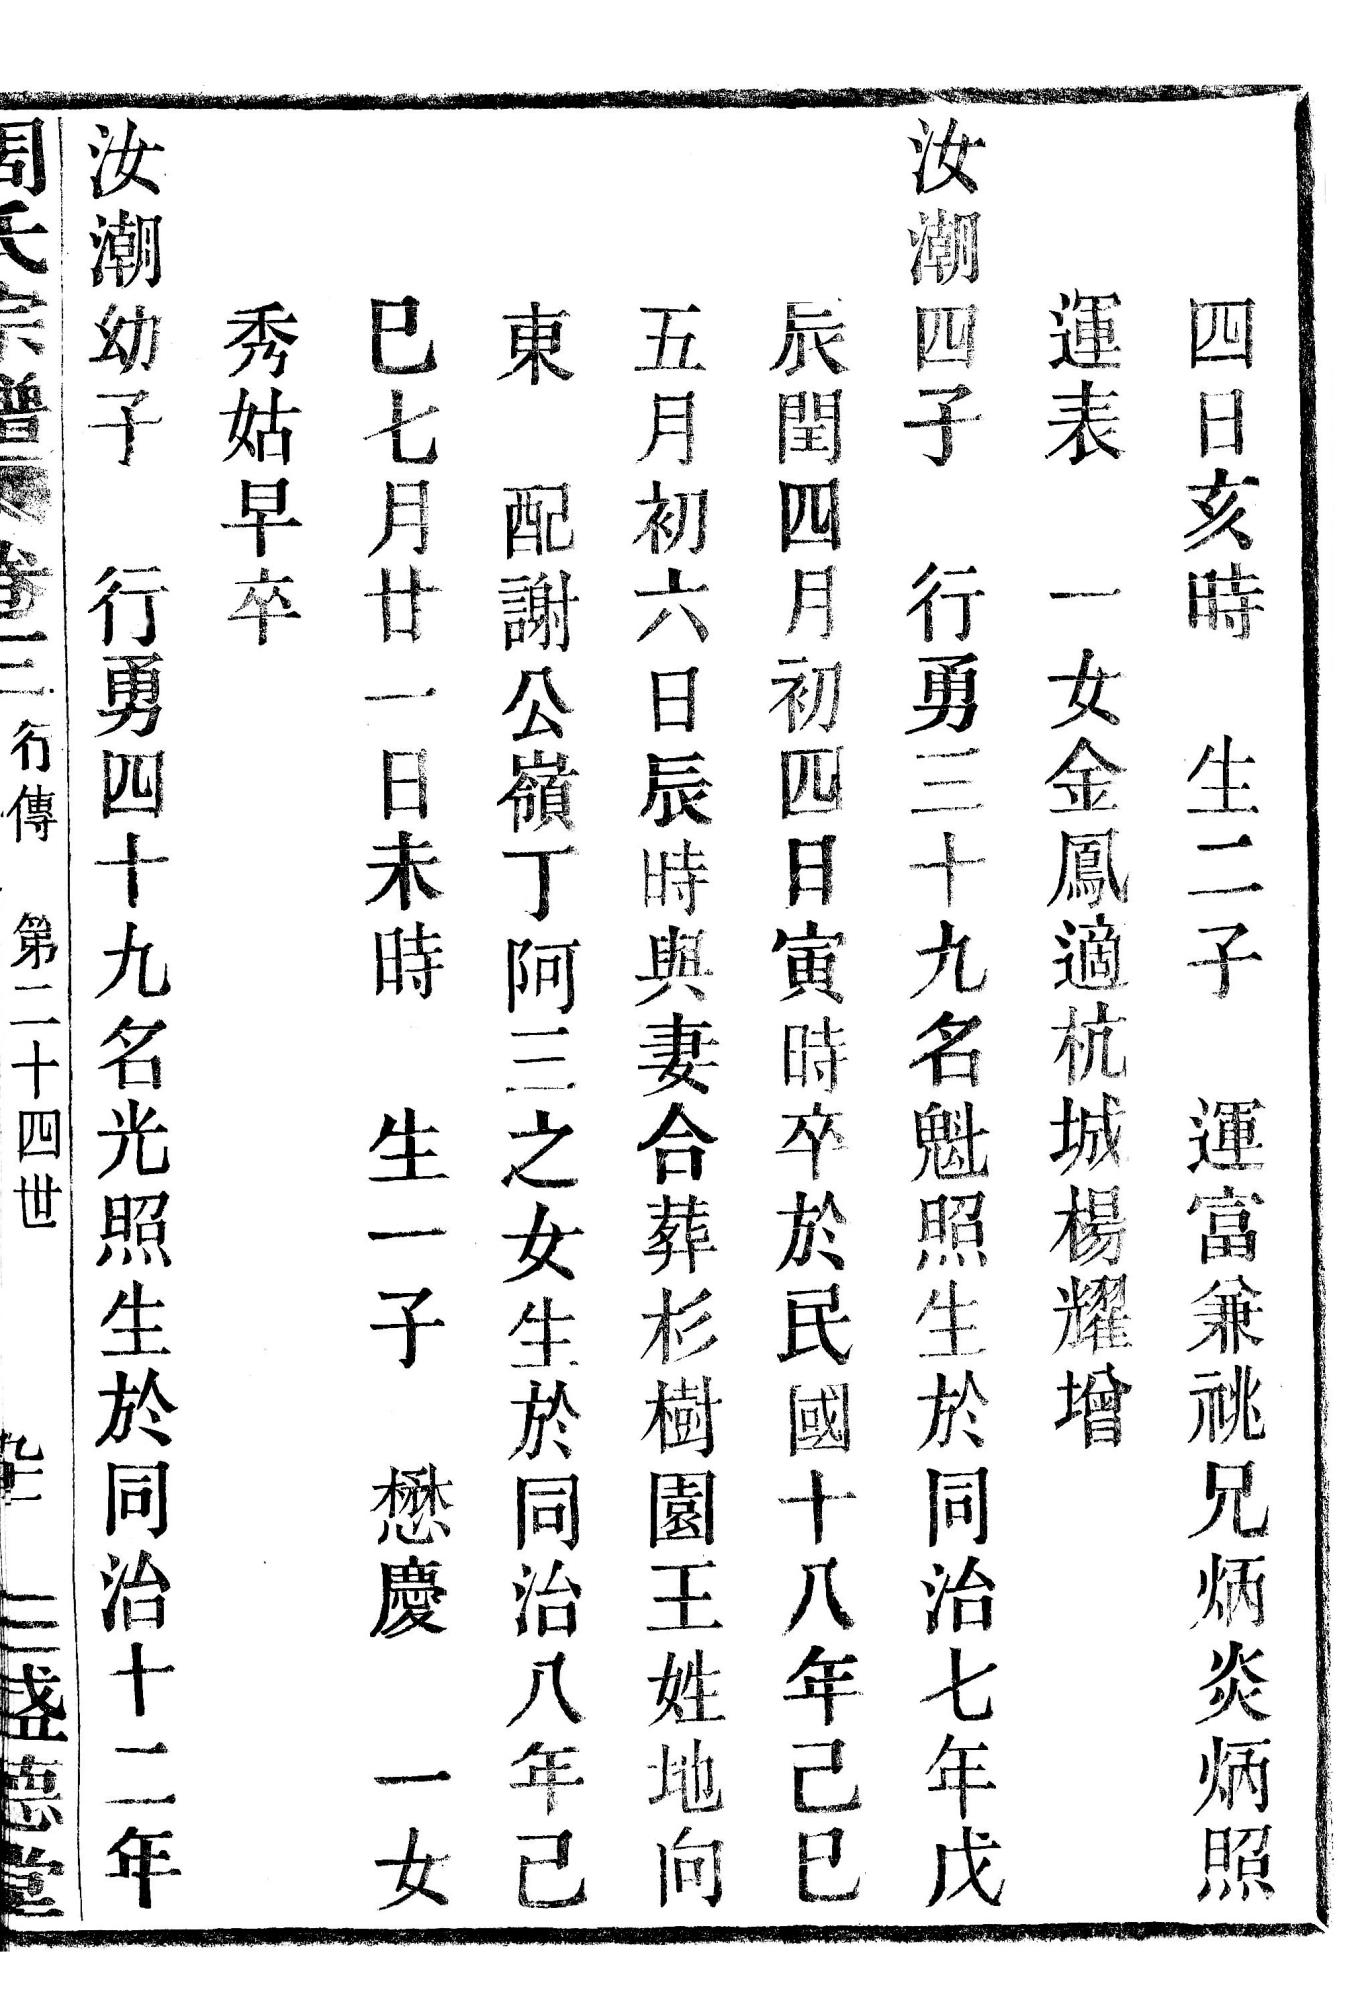 四日亥時　生二子　運富兼祧兄炳炎炳照
運表　一女金鳳適杭城楊耀增
汝潮四子　行勇三十九名魁照生於同治七年戊
辰閏四月初四日寅時卒於民國十八年己巳
五月初六日辰時與妻合葬杉樹園王姓地向
東　配謝公嶺丁阿三之女生於同治八年己
巳七月廿一日未時　生一子　懋慶　一女
秀姑早卒
汝潮幼子　行勇四十九名光照生於同治十二年
周氏宗譜　卷三　行傳　第二十四世　三盛德堂